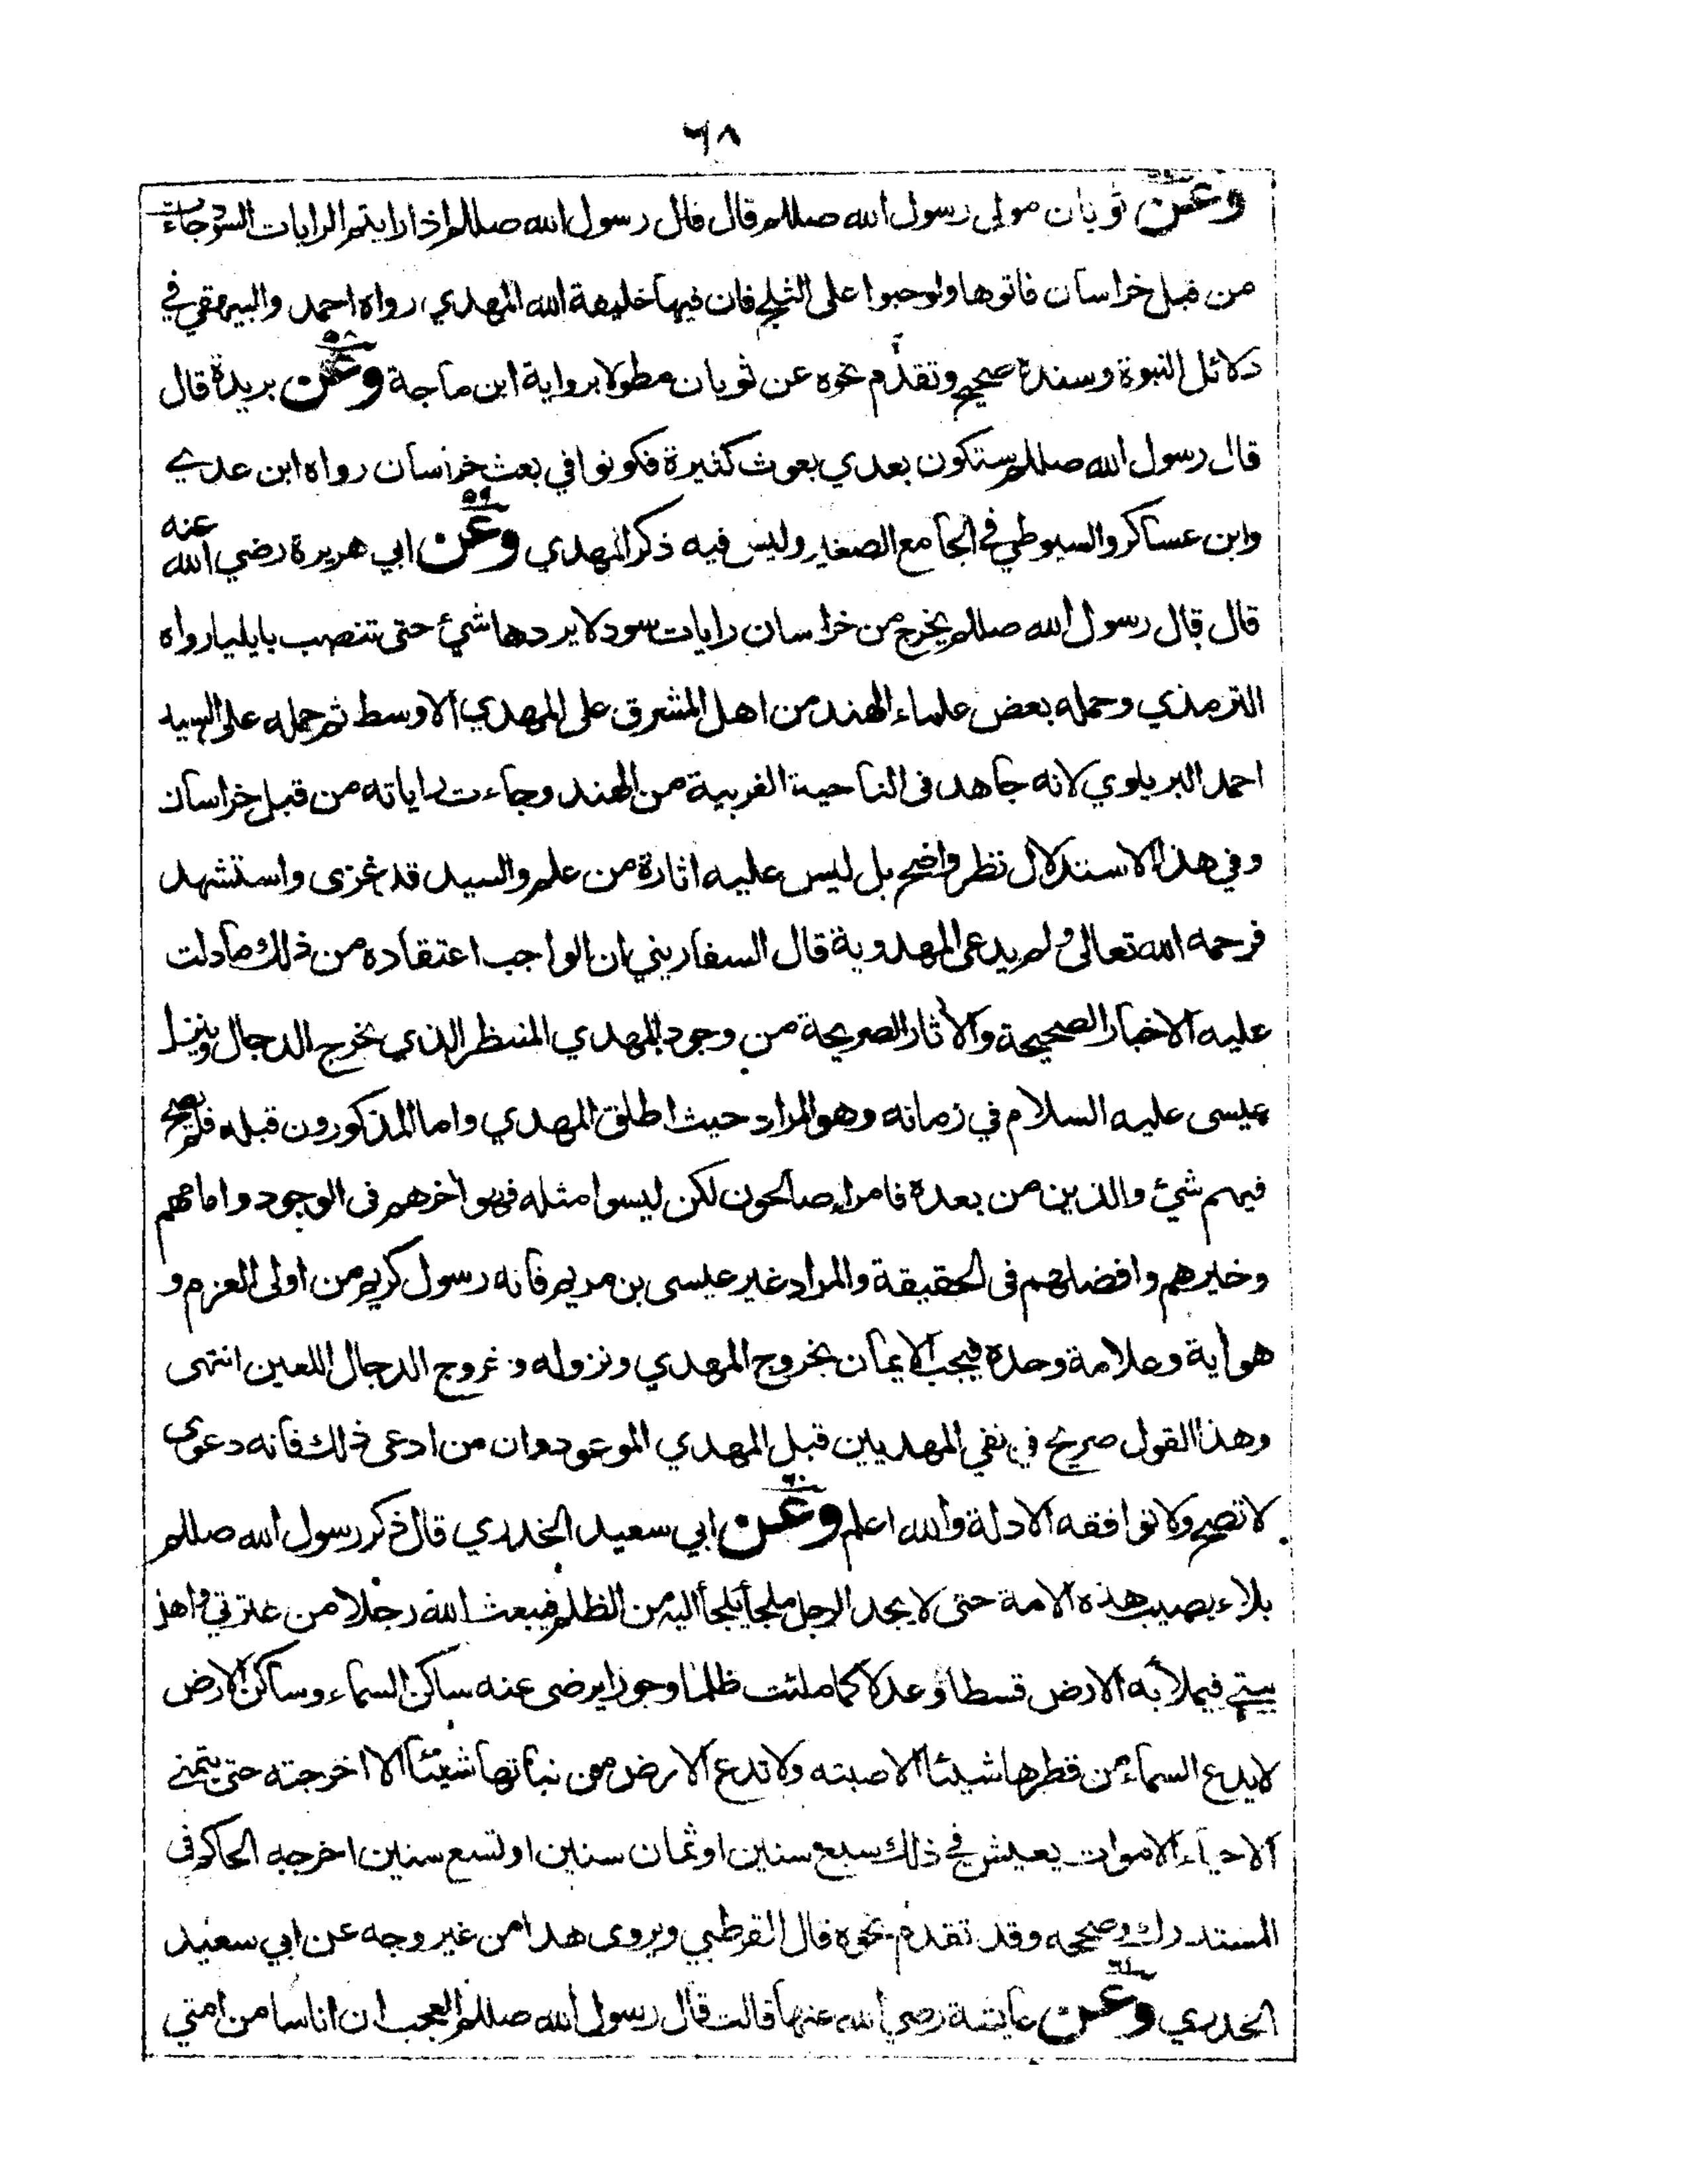 ٦٨
وعن ثوبان مولى رسول الله صللم قال قال رسول الله صللم اذا رايتم الرايات السود جاءت
من قبل خراسان فاتوها ولوحبوا على الثلج فان فيها خليفة الله المهدي رواه احمد والبيهقي في
دلائل النبوة وسنده صحيح وتقدم نحوه عن ثوبان مطولا برواية ابن ماجة وعن ٥٨ بريدة قال
قال رسول الله صللم ستكون بعدي بعوث كثيرة فكونوا في بعث خراسان رواه ابن عدي
وابن عساكر والسيوطي في الجامع الصغير وليس فيه ذكر المهدي وعن ٥٩ ابي هريرة رضي الله عنه
قال قال رسول الله صللم يخرج من خراسان رايات سود لا يردها شيئ حتى تنصب بايليا رواه
الترمذي وحمله بعض علماء الهند من اهل المشرق على المهدي الاوسط ثم حمله على السيد
احمد البريلوي لانه جاهد فى الناحية الغربية من الهند وجاءت راياته من قبل خراسان
وفي هذا الاستدلال نظر واضح بل ليس عليه اثارة من علم والسيد قد غزى واستشهد
فرحمه الله تعالى ولم يدعى المهدوية قال السفاريني ان الواجب اعتقاده من ذلك ما دلت
عليه الاخبار الصحيحة والآثار الصريحة من وجود المهدي المنتظر الذي يخرج الدجال وينزل
عيسى عليه السلام في زمانه وهو المراد حيث اطلق المهدي واما المذكورون قبله فلم يصح
فيهم شيئ والذين من بعده فامراء صالحون لكن ليسوا مثله فهو آخرهم فى الوجود وامامهم
وخيرهم وافضلهم فى الحقيقة والمراد غير عيسى بن مريم فانه رسول كريم من اولى العزم و
هو اية وعلامة وحده فيجب الايمان بخروج المهدي ونزوله وخروج الدجال اللعين انتهى
وهذا القول صريح في نفي المهديين قبل المهدي الموعود وان من ادعى ذلك فانه دعوى
لا تصح ولا توافقه الادلة والله اعلم وعن ٦٠ ابي سعيد الخدري قال ذكر رسول الله صللم
بلاء يصيب هذه الامة حتى لا يجد الرجل ملجأ يلجأ اليه من الظلم فيبعث الله رجلا من عترتي واهل
بيتي فيملأ به الارض قسطا وعدلا كما ملئت ظلما وجورا يرضى عنه ساكن السماء وساكن الارض
لا يدع السماء من قطرها شيئا الا صبته ولا تدع الارض من نباتها شيئا الا اخرجته حتى يتمنى
الاحياء الاموات يعيش في ذلك سبع سنين او ثمان سنين او تسع سنين اخرجه الحاكم فى
المستدرك وصححه وقد تقدم نحوه قال القرطبي ويروى هذا من غير وجه عن ابي سعيد
الخدري وعن ٦١ عايشة رضي الله عنها قالت قال رسول الله صللم العجب ان اناسا من امتي